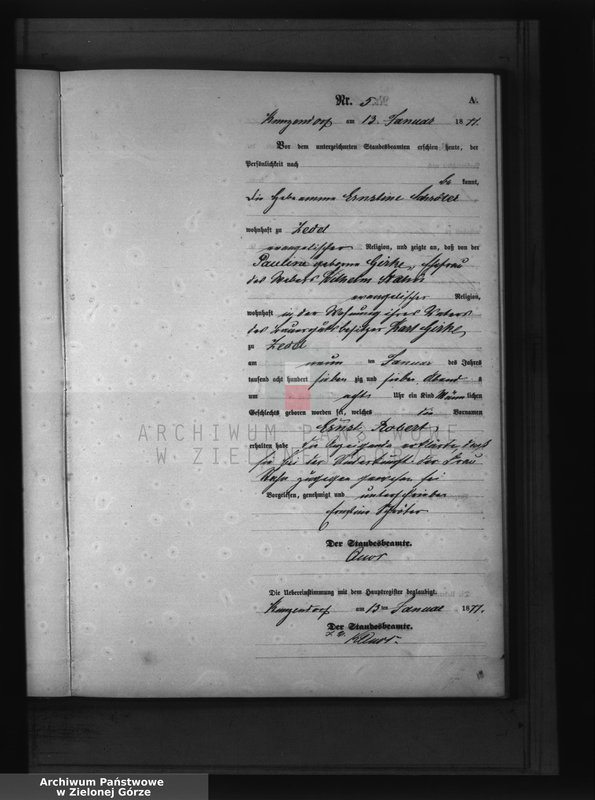 Nr. 5
A.
Kunzendorf am 13. Januar 1877.
Vor dem unterzeichneten Standesbeamten erschien heute, der
Persönlichkeit nach
be kannt,
die Hebeamme Ernstine Schröter
wohnhaft zu Zedel
evangelischer Religion, und zeigte an, daß von der
Pauline geborne Girke, Ehefrau
des Webers Wilhelm
evangelischer Religion,
wohnhaft in der Wohnung ihres Vaters
des Bauergutsbesitzer Karl Girke
zu Zedel
am neun ten Januar des Jahres
tausend acht hundert sieben zig und sieben Abend s
um acht Uhr ein Kind männ lichen
Geschlechts geboren worden sei, welches die Vornamen
Ernst Robert
erhalten habe Die Anzeigende erklärte, daß
sie bei der Niederkunft der Frau
zugegen gewesen sei
Vorgelesen, genehmigt und unterschrieben
Ernstine Schröter
Der Standesbeamte.
Die Uebereinstimmung mit dem Hauptregister beglaubigt.
Kunzendorf am 13 ten Januar 1877.
Der Standesbeamte.
ARCHIWUM PAŃSTWOWE
W ZIELONEJ GÓRZE
Archiwum Państwowe
w Zielonej Górze